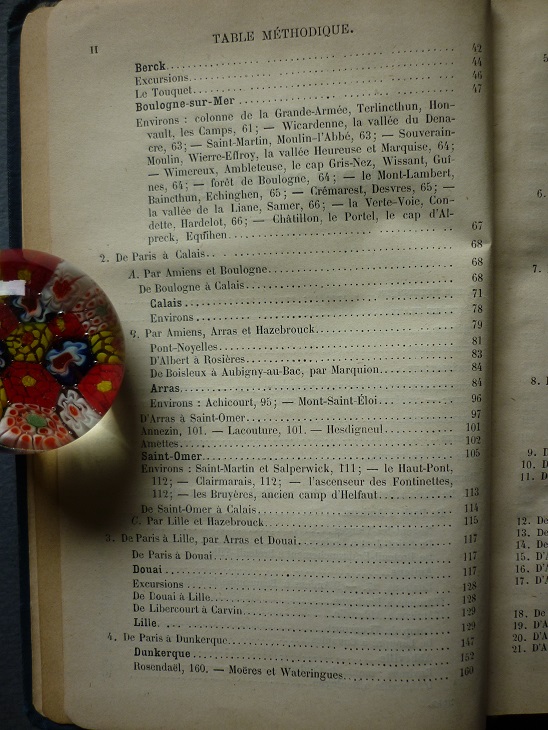 II
TABLE MÉTHODIQUE.
Berck 42
Excursions 44
Le Touquet 46
Boulogne-sur-Mer 47
Environs : colonne de la Grande-Armée, Terlincthun, Hon-
vault, les Camps, 61; — Wicardenne, la vallée du Dena-
cre, 63; — Saint-Martin, Moulin-l'Abbé, 63; — Souverain-
Moulin, Wierre-Effroy, la vallée Heureuse et Marquise, 64;
— Wimereux, Ambleteuse, le cap Gris-Nez, Wissant, Guî-
nes, 64; — forêt de Boulogne, 64; — le Mont-Lambert,
Baincthun, Echinghen, 65; — Crémarest, Desvres, 65; —
la vallée de la Liane, Samer, 66; — la Verte-Voie, Con-
dette, Hardelot, 66; — Châtillon, le Portel, le cap d'Al-
preck, Equihen 67
2. De Paris à Calais 68
A. Par Amiens et Boulogne 68
De Boulogne à Calais 68
Calais 71
Environs 78
B. Par Amiens, Arras et Hazebrouck 79
Pont-Noyelles 81
D'Albert à Rosières 83
De Boisleux à Aubigny-au-Bac, par Marquion 84
Arras 84
Environs : Achicourt, 95; — Mont-Saint-Éloi 96
D'Arras à Saint-Omer 97
Annezin, 101. — Lacouture, 101. — Hesdigneul 101
Amettes 102
Saint-Omer 105
Environs : Saint-Martin et Salperwick, 111; — le Haut-Pont,
112; — Clairmarais, 112; — l'ascenseur des Fontinettes,
112; — les Bruyères, ancien camp d'Helfaut 113
De Saint-Omer à Calais 114
C. Par Lille et Hazebrouck 115
3. De Paris à Lille, par Arras et Douai 117
De Paris à Douai 117
Douai 117
Excursions 128
De Douai à Lille 128
De Libercourt à Carvin 129
Lille 129
4. De Paris à Dunkerque 147
Dunkerque 152
Rosendaël, 160. — Moëres et Wateringues 160
5
6.
7.
8.
9.
10.
11.
12. De
13. De
14. De
15. D'A
16. D'A
17. D'A
18. De
19. D'A
20. D'A
21. D'A